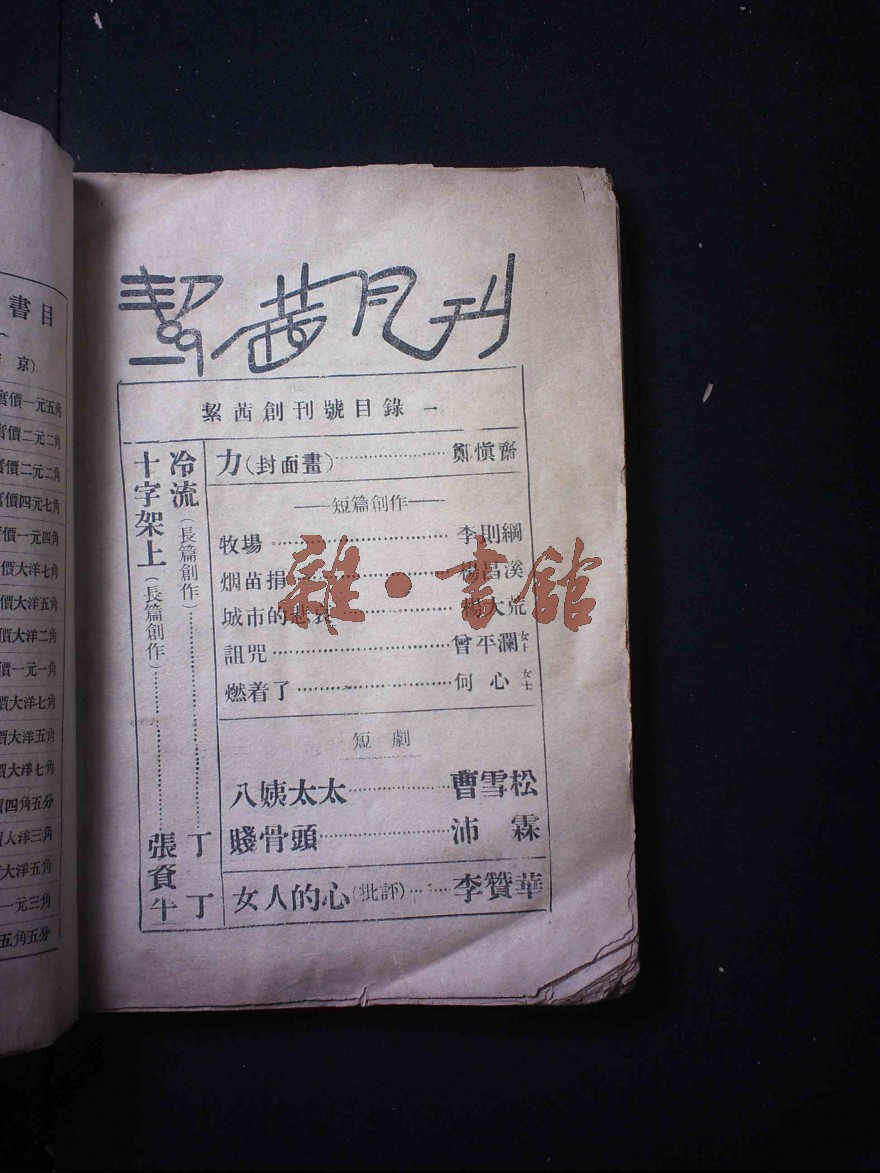 絜茜月刊
絜茜創刊號目錄 一
力(封面畫)……鄭愼齋
——短篇創作——
牧場……李則綱
烟苗捐……楊昌溪
城市的悲哀……楊大荒
詛咒……曾平瀾女士
燃着了……何心女士
短劇
八姨太太……曹雪松
賤骨頭……沛霖
女人的心(批評)……李贊華
冷流(長篇創作)……丁丁
十字架上(長篇創作)……張資平
雜·書館
書目
京)
實價一元五角
實價二元二角
實價二元二角
實價四元七角
實價一元四角
價大洋七角
價大洋五角
價大洋二角
價一元一角
價大洋七角
價大洋五角
價大洋七角
四角五分
大洋三角
大洋五角
一元三角
五角五分